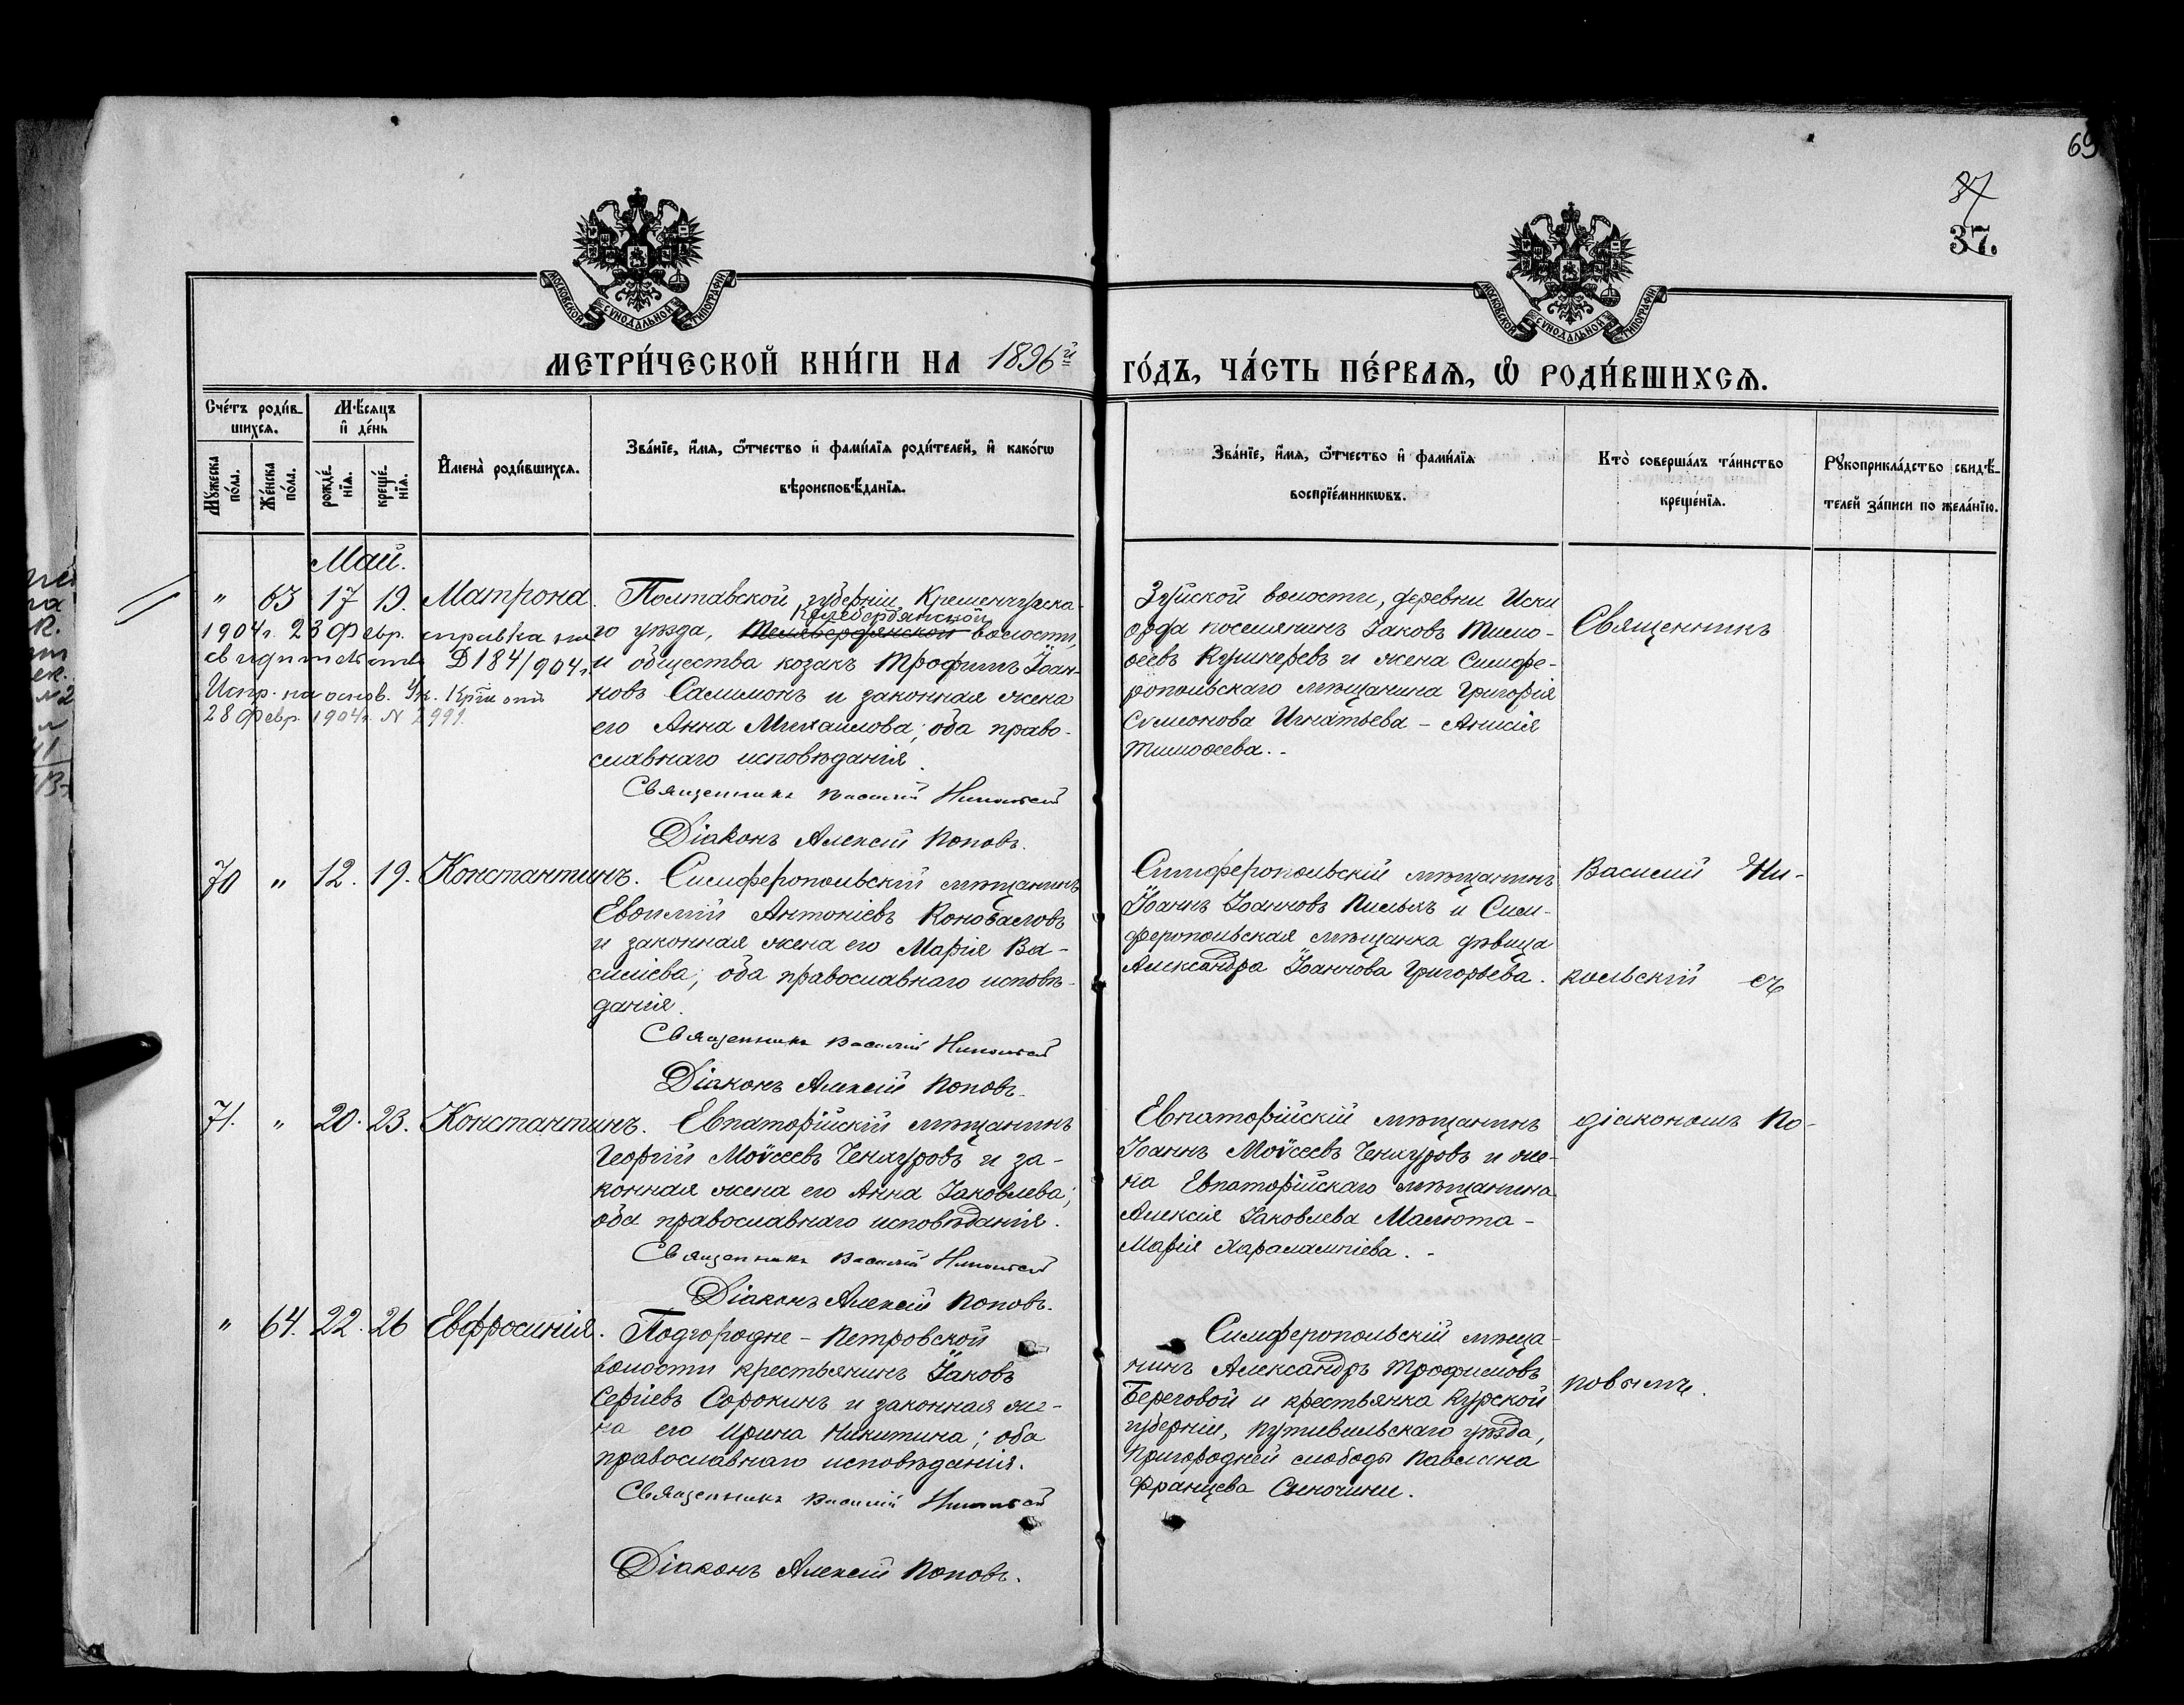 69
37
37.
МОСКОВСКОЙ СѴНОДАЛЬНОЙ ТИПОГРАФІИ
МОСКОВСКОЙ СѴНОДАЛЬНОЙ ТИПОГРАФІИ
МЕТРИ́ЧЕСКОЙ КНИ́ГИ НА 1896й ГО́ДЪ, ЧА́СТЬ ПЕ́РВАѦ, Ѽ РОДИ́ВШИХСѦ.
Сче́тъ роди́в-
шихсѧ.
Мꙋ́жеска
по́ла.
Же́нска
по́ла.
М‑ѣсѧцъ
и҆ де́нь
рожде́-
нїѧ.
креще́-
нїѧ.
И҆мена̀ роди́вшихсѧ.
Зва́нїе, и҆́мѧ, ѻ҆́тчество и҆ фами́лїѧ роди́телей, и҆ како́гѡ
вѣроисповѣ́данїѧ.
Зва́нїе, и҆́мѧ, ѻ҆́тчество и҆ фами́лїѧ
воспрїе́мникѡвъ.
Кто̀ соверша́лъ та́инство
креще́нїѧ.
Рꙋкоприкла́дство свидѣ́-
телей за́писи по жела́нїю.
Май.
" 63 17 19. Матрона. Полтавской губерніи Кременчугска-
Келебердянской
го уѣзда, волости,
и общества козакъ Трофимъ Іоан-
новъ Салимонъ и законная жена
его Анна Михаилова; оба право-
славнаго исповѣданія.
Священникъ Василій Никольскій
Діаконъ Алексій Поповъ.
1904г. 23 Февр. справка на
свидѣтельств. 184/904г.
Испр. на основ. Ук. от
28 февр. 1904г. N 2991.
Зуйской волости, деревни Иски
орда поселянинъ Іаковъ Тимо-
ѳеевъ Кушнеревъ и жена Симфе-
ропольскаго мѣщанина Григорія
Симеонова Игнатьева - Анисія
Тимоѳеева.-
Священникъ
70 " 12. 19. Константинъ. Симферопольскій мѣщанинъ
Евѳимій Антоніевъ Коноваловъ
и законная жена его Марія Ва-
силіева; оба православнаго исповѣ-
данія.
Священникъ Василій Никольскій
Діаконъ Алексій Поповъ.
Симферопольскій мѣщанинъ
Іоаннъ Іоанновъ и Сим-
феропольская мѣщанка дѣвица
Александра Іоаннова Григорьева.
Василій Ни-
кольскій съ
71. " 20. 23. Константинъ. Евпаторійскій мѣщанинъ
Георгій Моѵсеевъ Ченгуровъ и за-
конная жена его Анна Іаковлева;
оба православнаго исповѣданія.
Священникъ Василій Никольскій
Діаконъ Алексій Поповъ.
Евпаторійскій мѣщанинъ
Іоаннъ Моѵсеевъ Ченгуровъ и же-
на Евпаторійскаго мѣщанина
Алексія Іаковлева Малюта -
Марія Харалампіева.-
діакономъ По-
" 64. 22. 26 Евфросинія. Подгородне-Петровской
волости крестьянинъ Іаковъ
Сергіевъ Сорокинъ и законная же-
на его Ирина Никитина; оба
православнаго исповѣданія.
Священникъ Василій Никольскій
Діаконъ Алексій Поповъ.
Симферопольскій мѣща-
нинъ Александръ Трофимовъ
Береговой и крестьянка Курской
губерніи, Путивльскаго уѣзда,
Пригородней слободы Павлина
Францева
повымъ.